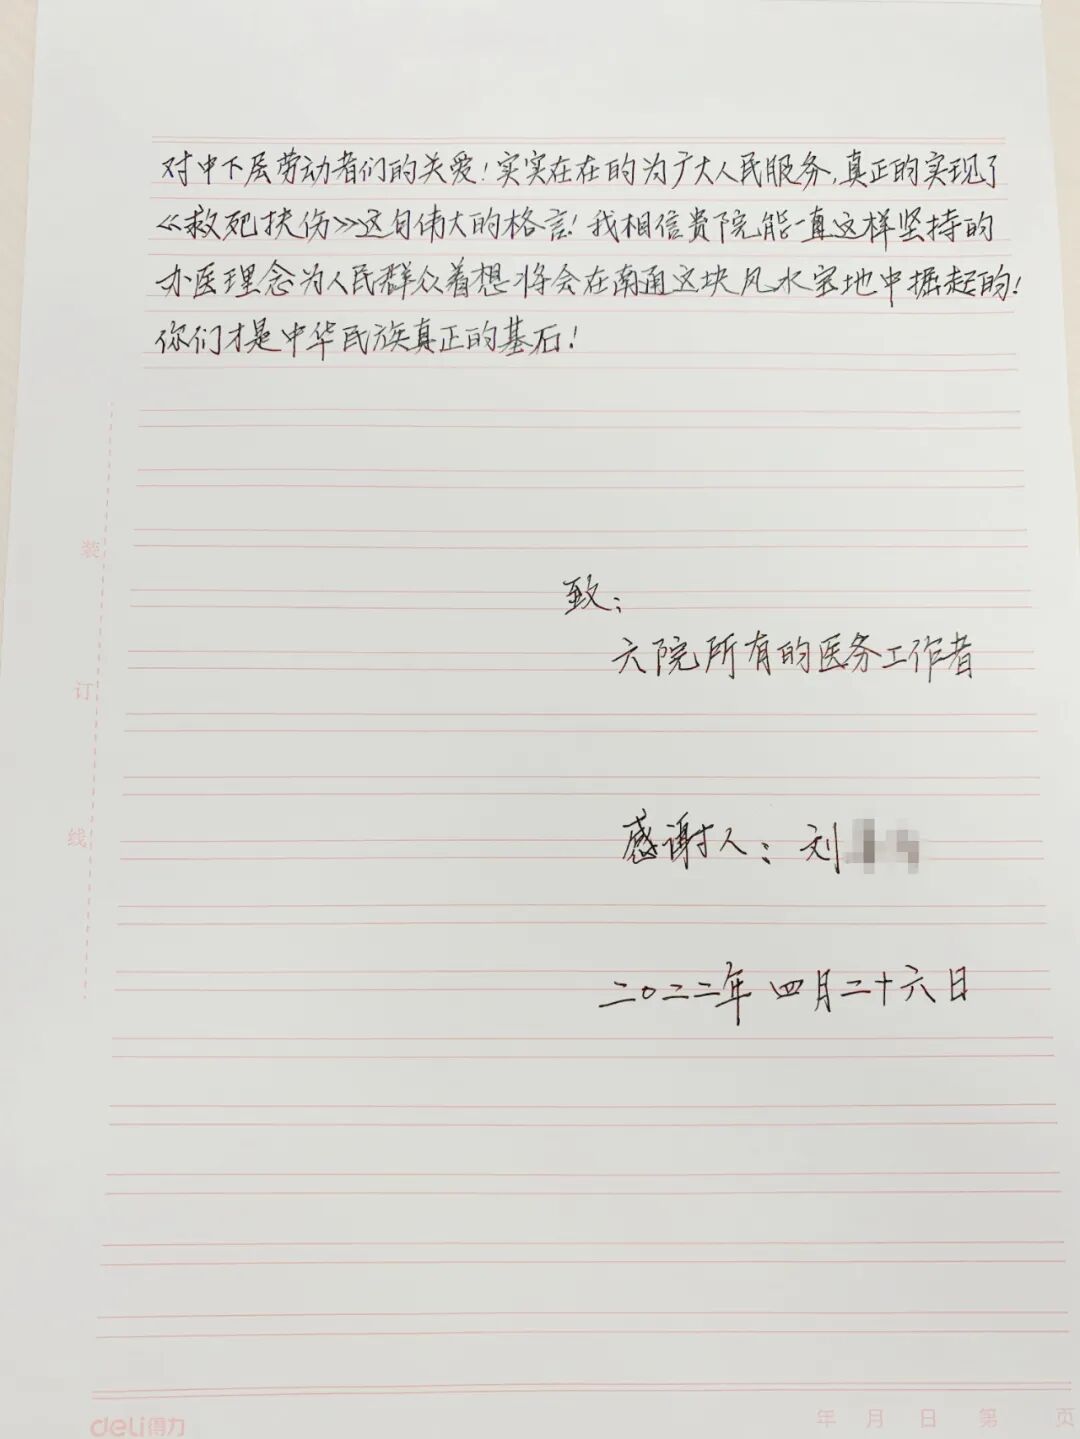 对中下层劳动者们的关爱！实实在在的为广大人民服务，真正的实现了
《救死扶伤》这句伟大的格言！我相信贵院能一直这样坚持的
办医理念为人民群众着想将会在南通这块风水宝地中掘起的！
你们才是中华民族真正的基石！
装
订
线
致：
六院所有的医务工作者
感谢人：刘
二〇二二年 四月二十六日
deli得力
年 月 日 第 页